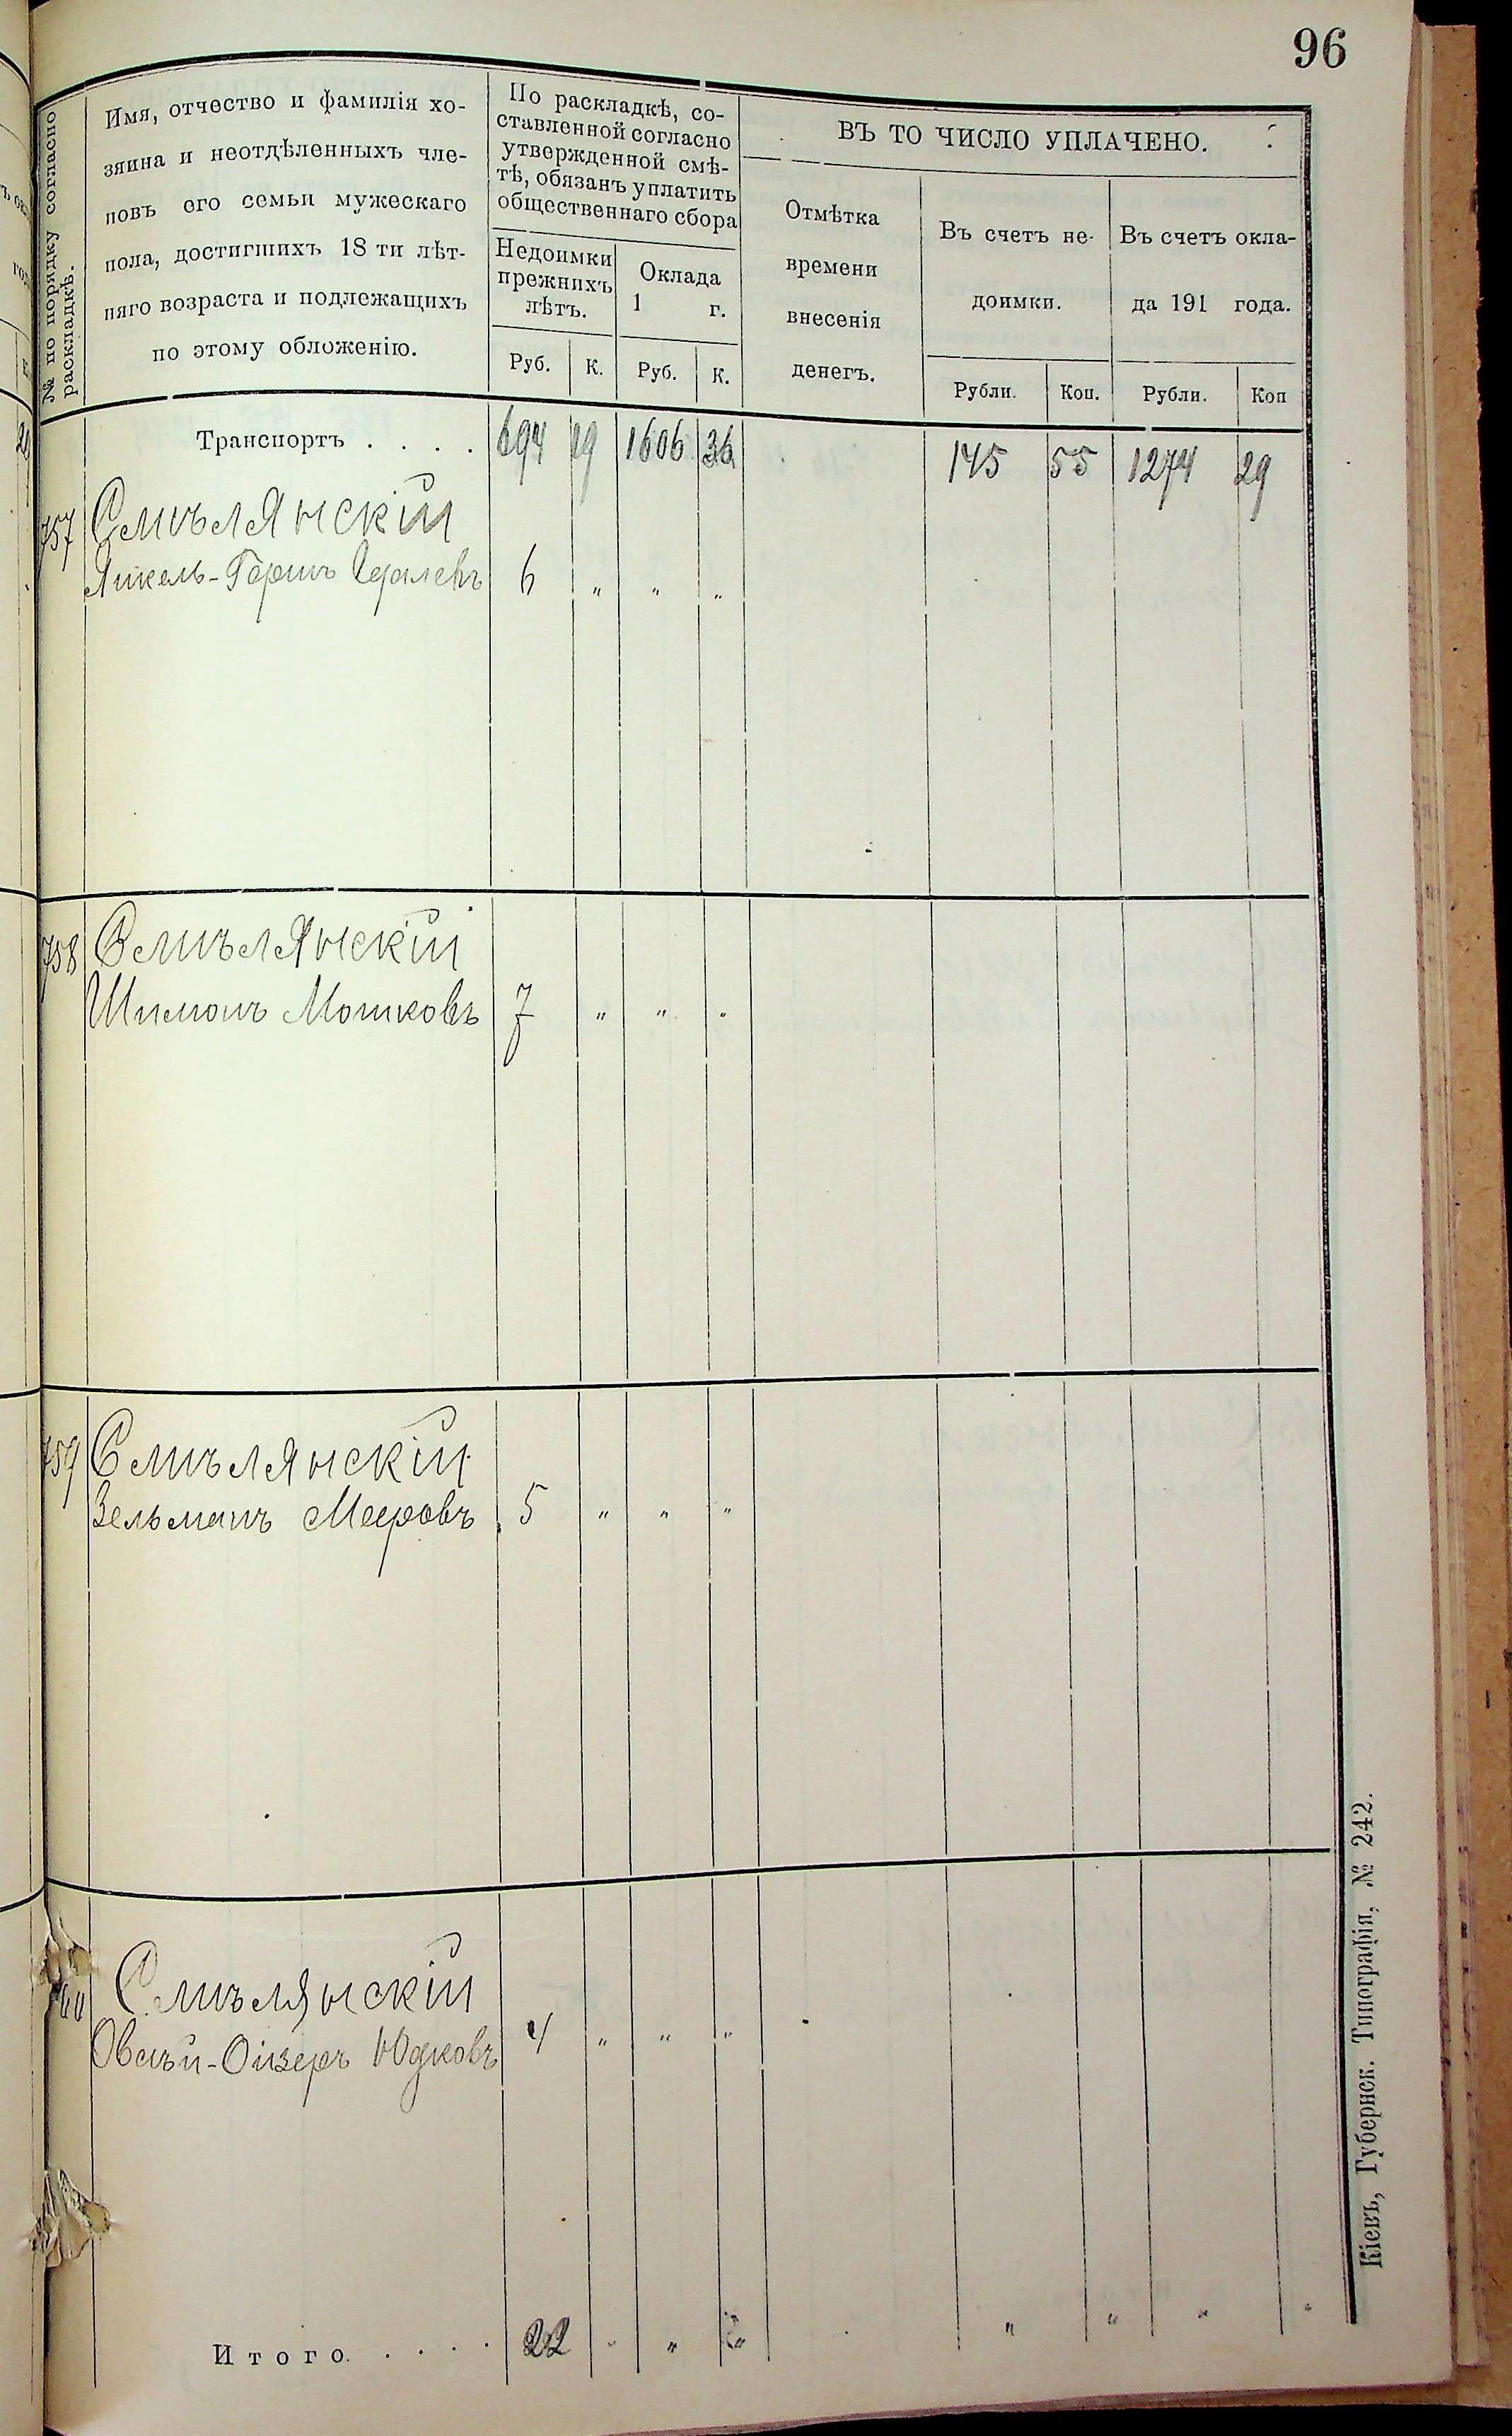 96
№ по порядку согласно
раскладкѣ.
Имя, отчество и фамилія хо-
зяина и неотдѣленныхъ чле-
новъ его семьи мужескаго
пола, достигшихъ 18 ти лѣт-
няго возраста и подлежащихъ
по этому обложенію.
По раскладкѣ, со-
ставленной согласно
утвержденной смѣ-
тѣ, обязанъ уплатить
общественнаго сбора
Недоимки
прежнихъ
лѣтъ.
Оклада
1 г.
Руб. К. Руб. К.
ВЪ ТО ЧИСЛО УПЛАЧЕНО.
Отмѣтка
времени
внесенія
денегъ.
Въ счетъ не-
доимки.
Въ счетъ окла-
да 191 года.
Рубли. Коп. Рубли. Коп
Транспортъ . . . . 694 19 1606 36 145 55 1274 29
757 Смѣлянскій
Янкель-Гершъ 6 " " "
758 Смѣлянскій
Шимонъ Мошковъ 7 " " "
759 Смѣлянскій
Зельманъ Мееровъ 5 " " "
Смѣлянскій
Овсѣй-Ойзеръ Юдковъ 4 " " "
Итого. . . . . 22 " " " " " " "
Кіевъ, Губернск. Типографія, № 242.